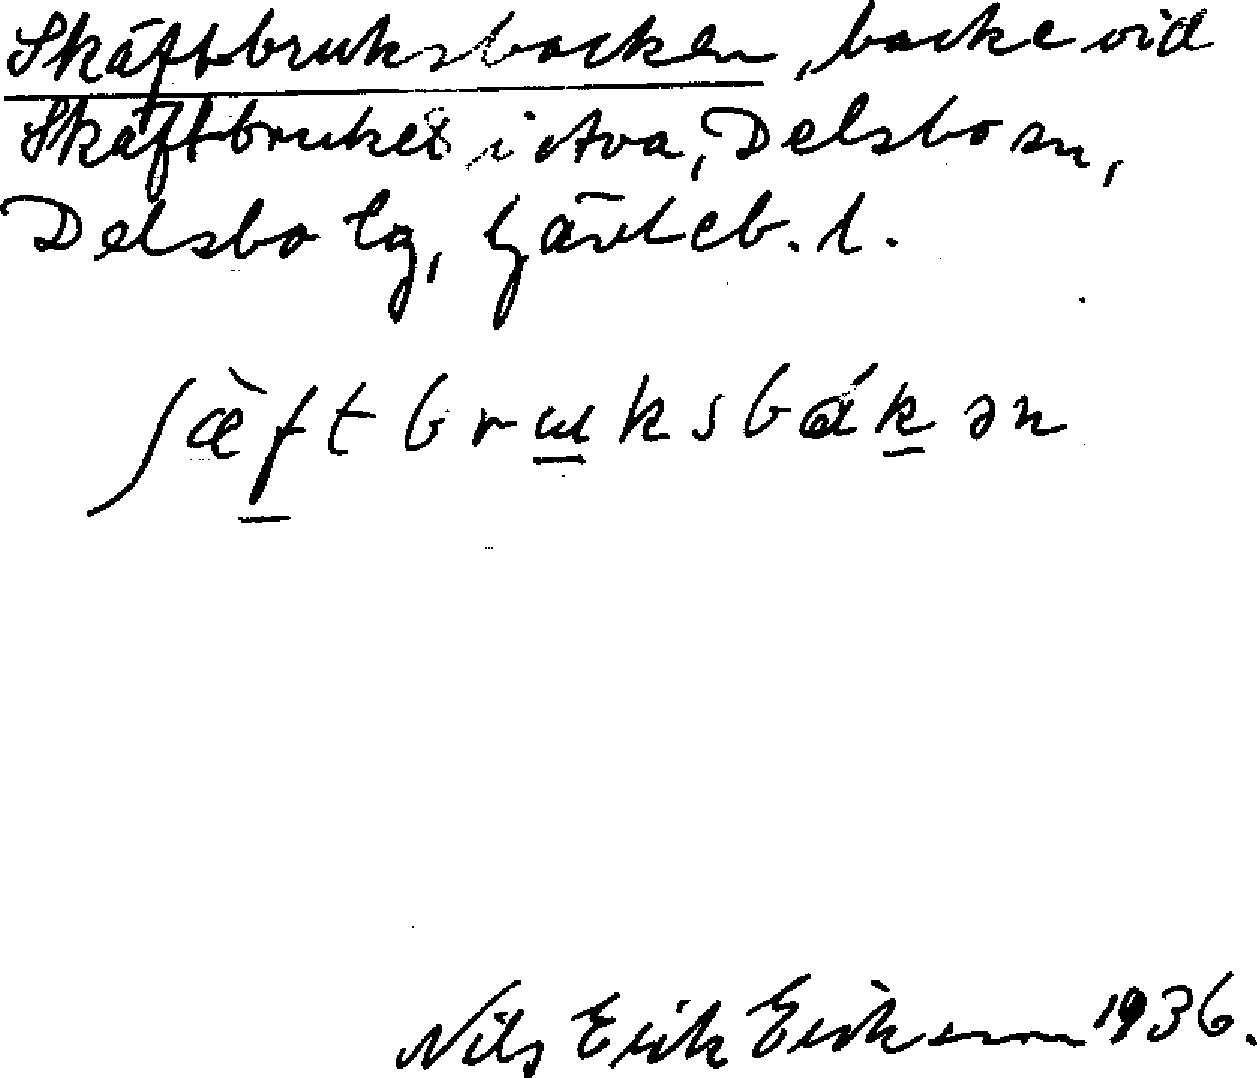 Skäftbruksbacken, backe vid
Skäftbruket i Ava, Delsbo sn,
Delsbo tg, Gävleb. l.
ʃæ̀ftbruksbákən
Nils Erik Eriksson 1936.